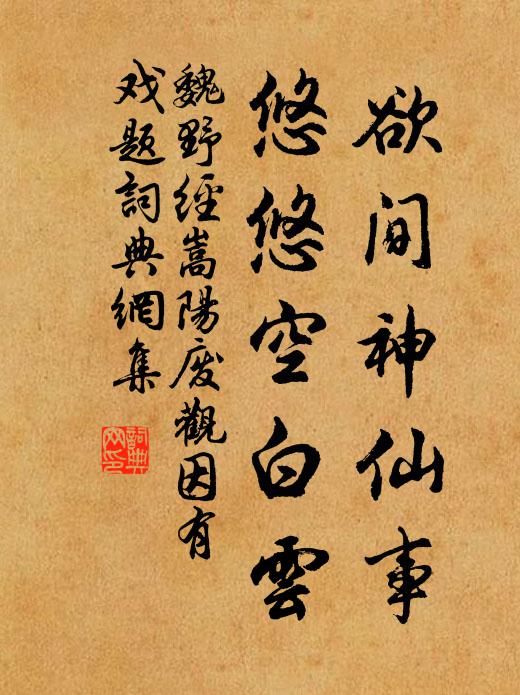 欲间神仙事
悠悠空白雲
魏野經嵩陽废觀因有
戏题詞典網集
詞典网印